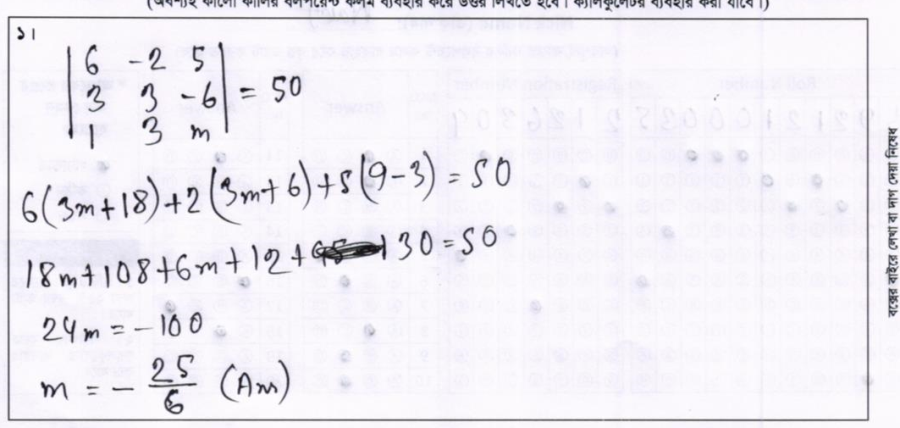 (অবশ্যই কালো কালির বলপয়েন্ট কলম ব্যবহার করে উত্তর লিখতে হবে। ক্যালকুলেটর ব্যবহার করা যাবে।)
১।
| 6 -2 5 |
| 3 3 -6 | = 50
| 1 3 m |
6(3m+18)+2(3m+6)+5(9-3) = 50
18m+108+6m+12+30=50
24m = -100
m = - 25/6 (Ans)
বক্সের বাইরে লেখা বা দাগ দেয়া নিষেধ